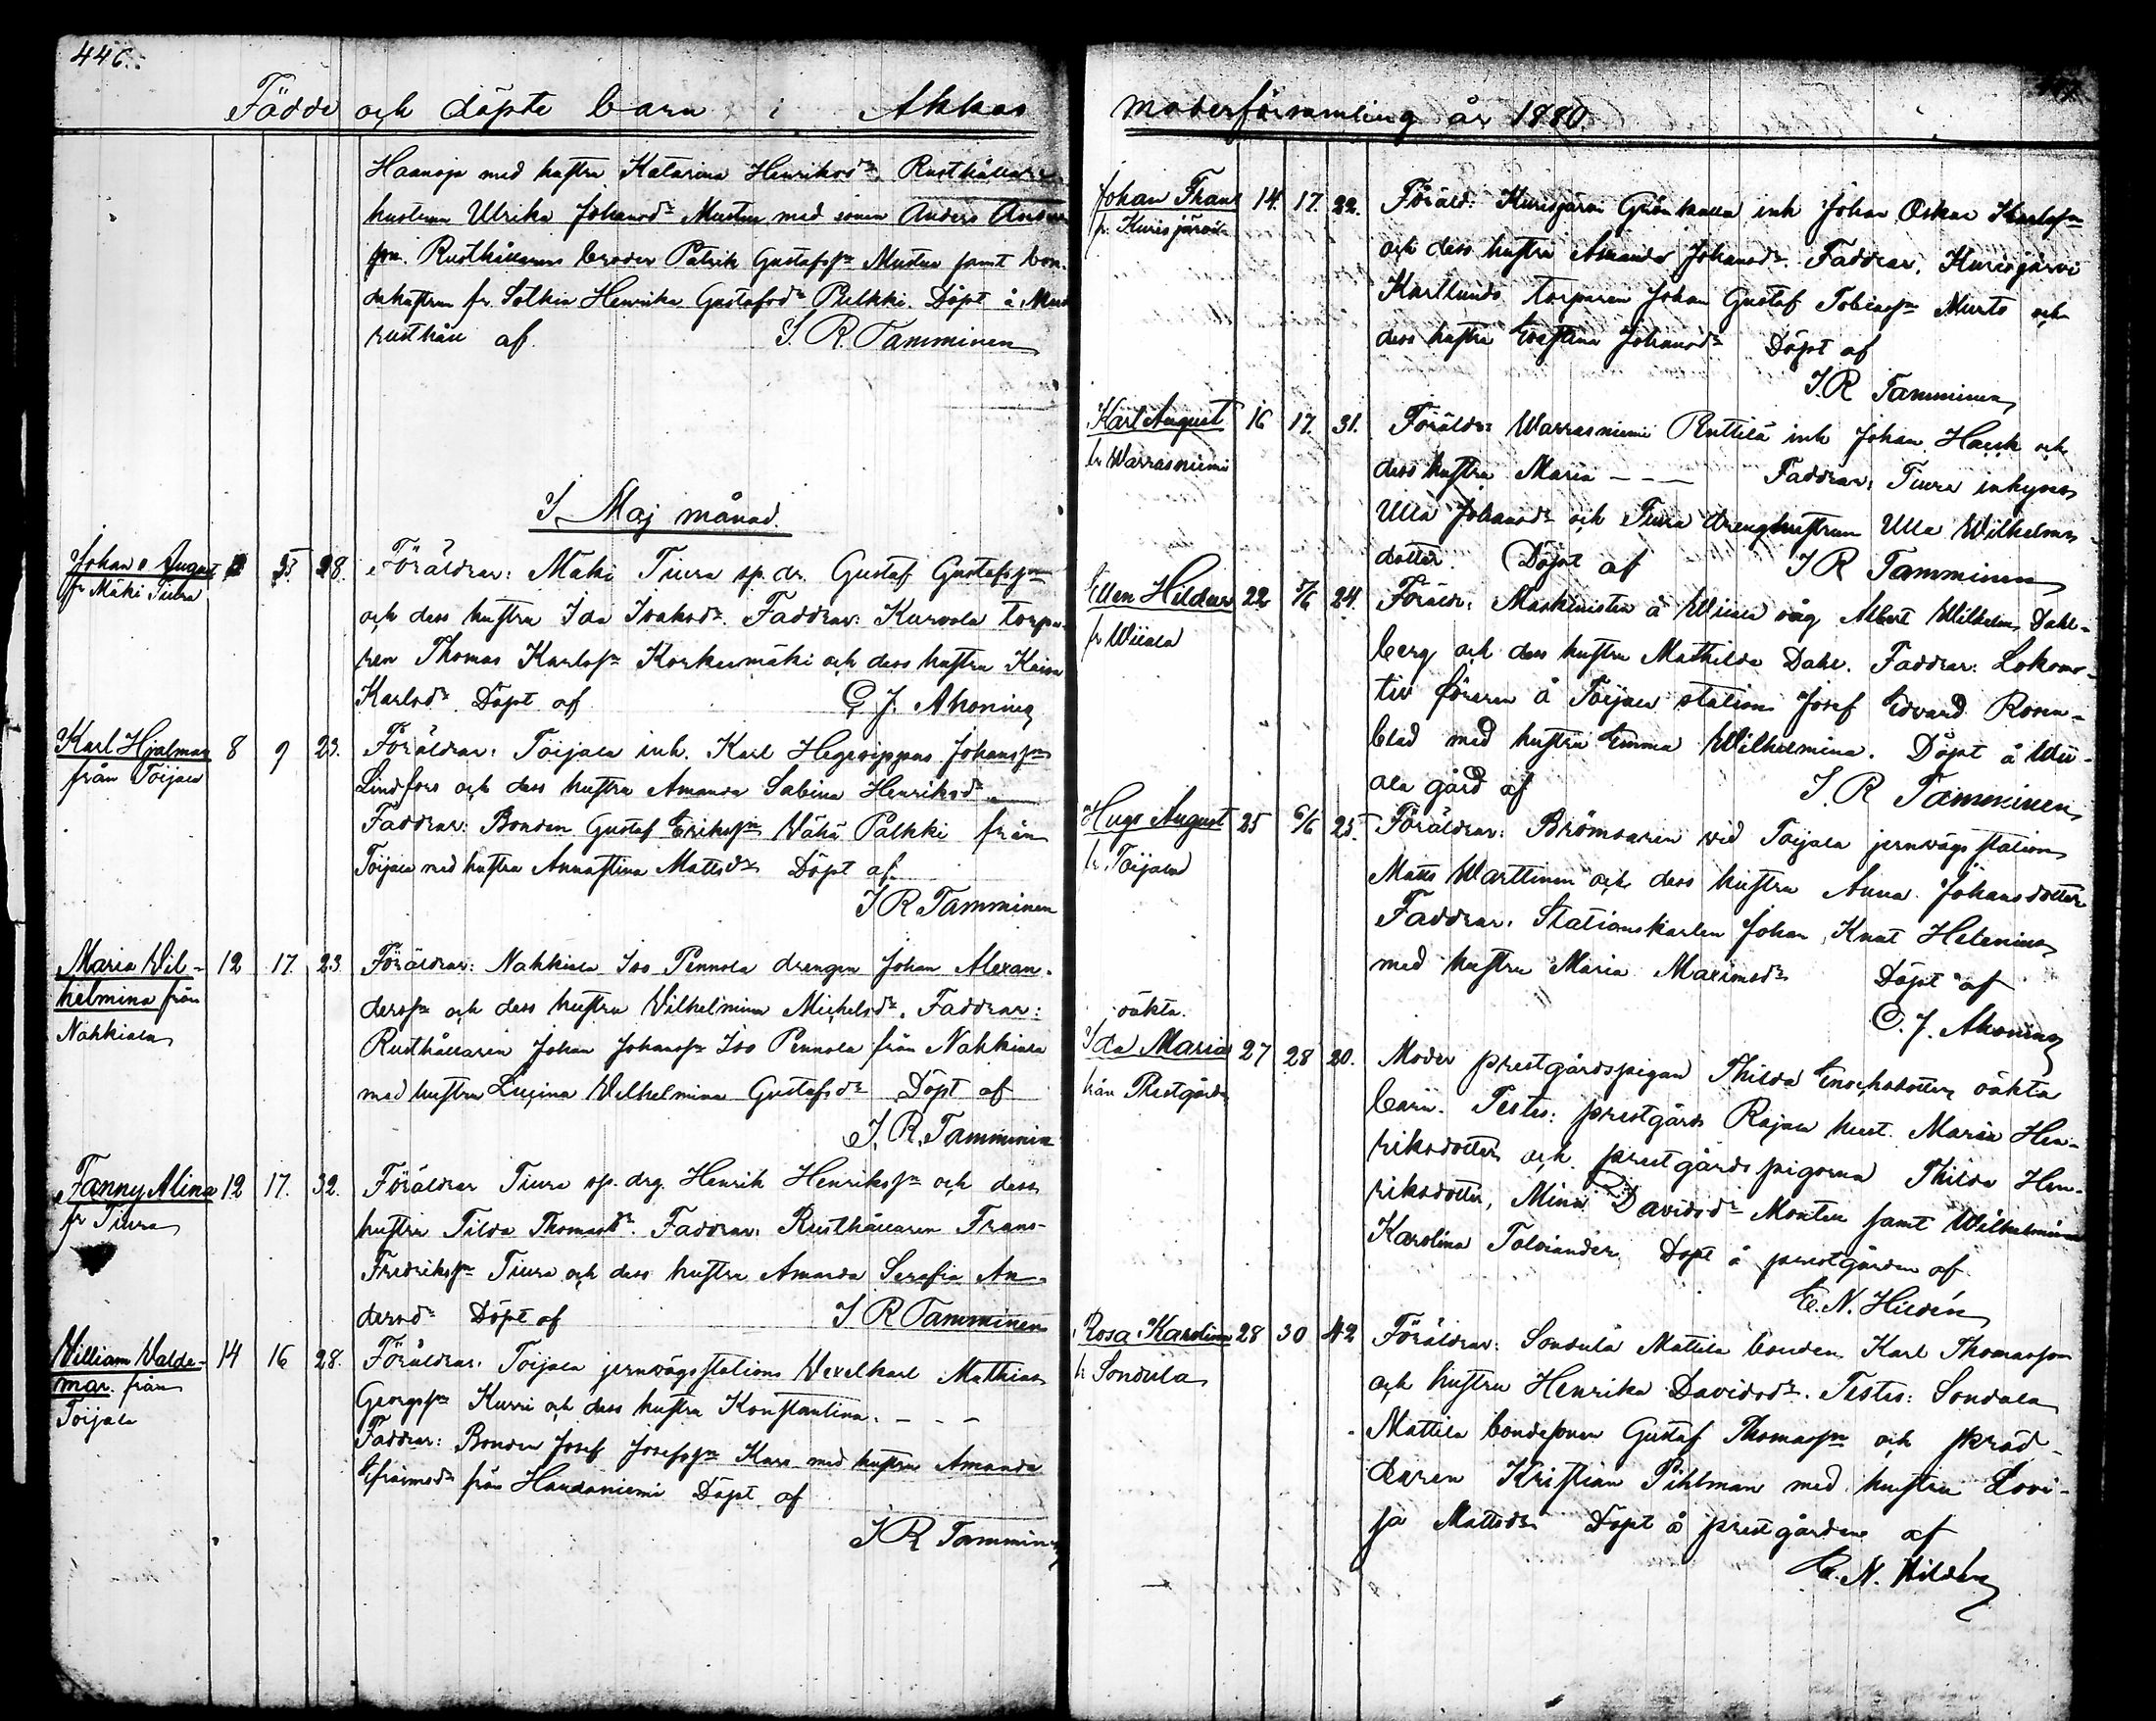 446.
Födde och döpte barn i Akkas
Haanoja med hustru Katarina Henriksdr. Rusthållare
hustrun Ulrika Johansdr Mustue med sonen Anders Anders
son. Rusthållarens broder Patrik Gustafsson Mustue samt bon-
dehustrun fr. Sotkia Henrika Gustafsdr Pulkki. Döpt å
rusthåll af J. R. Tamminen
I Maj månad.
Johan August 25. 28. Föräldrar: Mäki Tiura sp. dr. Gustaf Gustafsson
fr Mäki Tiura
och dess hustru Ida Isaksdr. Faddrar: Kurvola torpa-
ren Thomas Karlsson Korkeemäki och dess hustru Kaisa
Karlsdr. Döpt af C. J. Ahoning
Karl Hjalmar 8 9 23. Föräldrar: Toijala inh. Karl Hegesippus Johansson
från Toijala
Lindfors och dess hustru Amanda Sabina Henriksdr.
Faddrar: Bonden Gustaf Eriksson Vähä Palkki från
Toijala med hustru Annastina Mattsdr Döpt af
J R Tamminen
Maria Vil- 12 17. 23 Föräldrar: Nahkiala Iso Pennola drengen Johan Alexan-
helmina från
Nahkiala
dersson och dess hustru Vilhelmina Michelsdr. Faddrar:
Rusthållaren Johan Johansson Iso Pennola från Nahkiala
med hustru Lucina Vilhelmina Gustafsdr Döpt af
J. R. Tamminen
Fanny Alina 12 17. 32. Föräldrar Tiura sp. drg. Henrik Henriksson och dess
fr Tiura
hustru Tilda Thomasdr. Faddrar: Rusthållaren Frans
Fredriksson Tiura och dess hustru Amanda Serafia An-
dersdr Döpt af J R Tamminen
William Valde- 14 16 28. Föräldrar: Toijala jernvägsstations Vexelkarl Mathias
mar. från
Toijala
Georgsson Kurri och dess hustru Konstantina. - - -
Faddrar: Bonden Josef Josefsson Kars med hustru Amanda
Efraimsdr från Haudaniemi Döpt af
J R Tamminen
moderförsamling år 1880.
Johan Frans 14. 17. 22. Föräld: Kurisjärvi Grönkulla inh Johan Oskar Karlsson
fr. Kurisjärvi
och dess hustru Amanda Johansdr. Faddrar. Kurisjärvi
Karlunds torparen Johan Gustaf Tobiasson Murto och
dess hustru Evastina Johansdr Döpt af
J. R Tamminen
Karl August 16 17. 31. Föräldr: Warrasniemi Ruttilä inh Johan Haesk och
fr Warrasniemi
dess hustru Maria - - - Faddrar: Tiura inhyses
Ulla Johansdr och Tiura drenghustrun Ulla Wilhelms-
dotter. Döpt af J R Tamminen
Ellen Hildur 22 5/6 24. Föräldr: Maskinisten å Wiiala såg Albert Wilhelm Dahl-
fr Wiiala
berg och dess hustru Mathilda Dahl. Faddrar: Lokomo-
tiv föraren å Toijala station Josef Edvard Rosen-
blad med hustru Emma Wilhelmina. Döpt å Wii-
ala gård af J. R Tamminen
Hugo August 25 6/6 25. Föräldrar: Brömsaren vid Toijala jernvägsstation
fr. Toijala
Matts Warttinen och dess hustru Anna Johansdotter
Faddrar: Stationskarlen Johan Knut Helenius
med hustru Maria Maximsdr Döpt af
C. J. Ahoning
oäkta.
Ida Maria 27 28 20. Moder prestgårdspigan Thilda Enochsdotter oäkta
från Prestgården
barn. Testes: prestgårds Rajala hust. Maria Hen-
riksdotter och prestgårds pigorna Thilda Hen-
riksdotter, Mina Davidsdr Monten samt Wilhelmina
Karolina Tolviander Döpt å prestgården af
E. N. Hildén
Rosa Karolina 28. 30 42 Föräldrar: Sondula Mattila bonden Karl Thomasson
fr Sondula
och hustru Henrika Davidsdr. Testes: Sondala
Mattila bondesonen Gustaf Thomasson och skräd-
daren Kristian Pihlman med hustru Lovi-
sa Mattsdr Döpt å prestgården af
E. N. Hildén